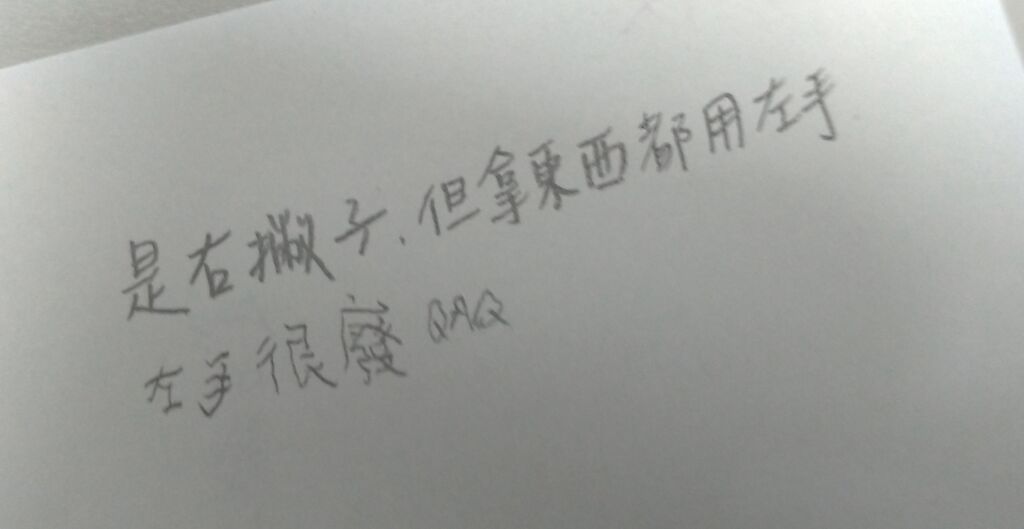 是右撇子,但拿東西都用左手
左手很廢 QAQ